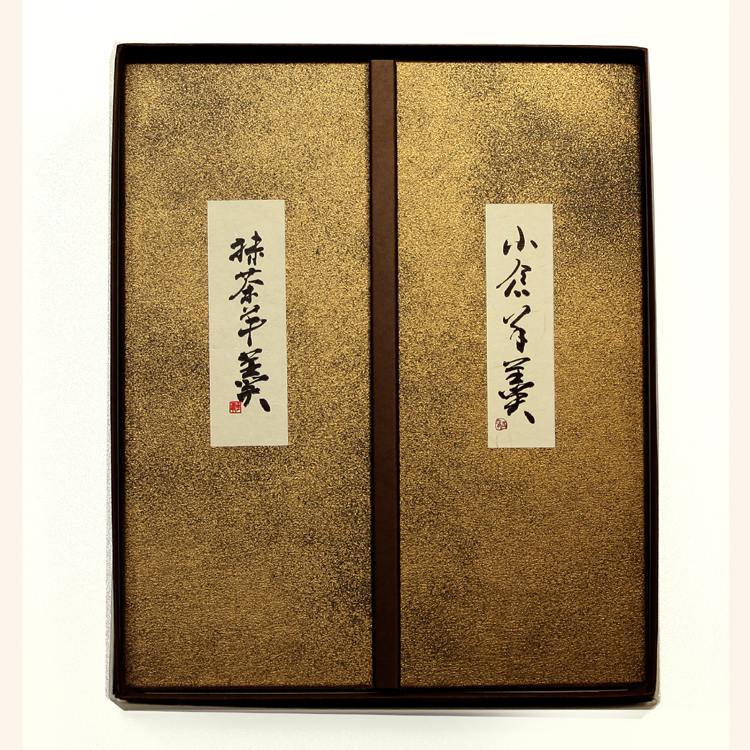 小倉羊羹
抹茶羊羹